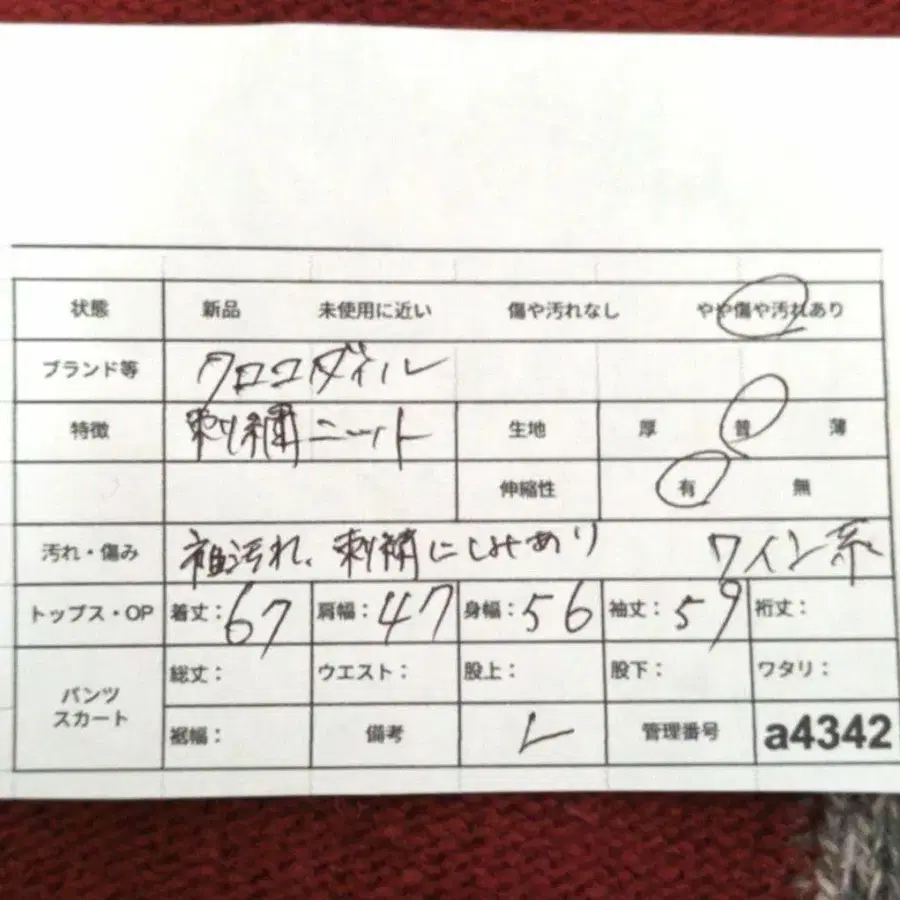 状態 新品 未使用に近い 傷や汚れなし やや傷や汚れあり
ブランド等 クロコダイル
特徴 刺繍ニット 生地 厚 普 薄
伸縮性 有 無
汚れ・傷み 袖汚れ、刺繍にしみあり ワイン系
トップス・OP 着丈：67 肩幅：47 身幅：56 袖丈：59 裄丈：
パンツ スカート 総丈： ウエスト： 股上： 股下： ワタリ：
裾幅： 備考 L 管理番号 a4342